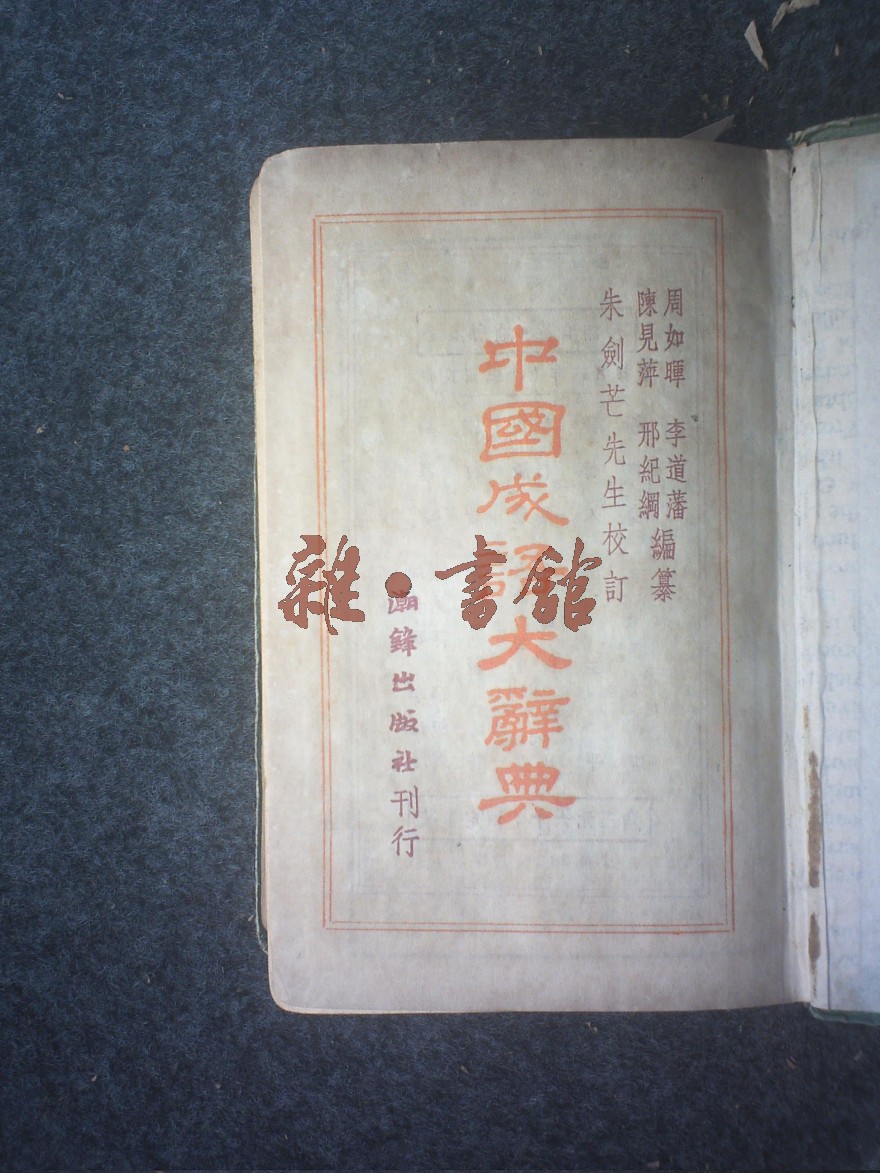 周如暉 李道藩
陳見萍 邢紀綱 編纂
朱劍芒先生校訂
中國成語大辭典
潮鋒出版社刊行
雜·書館